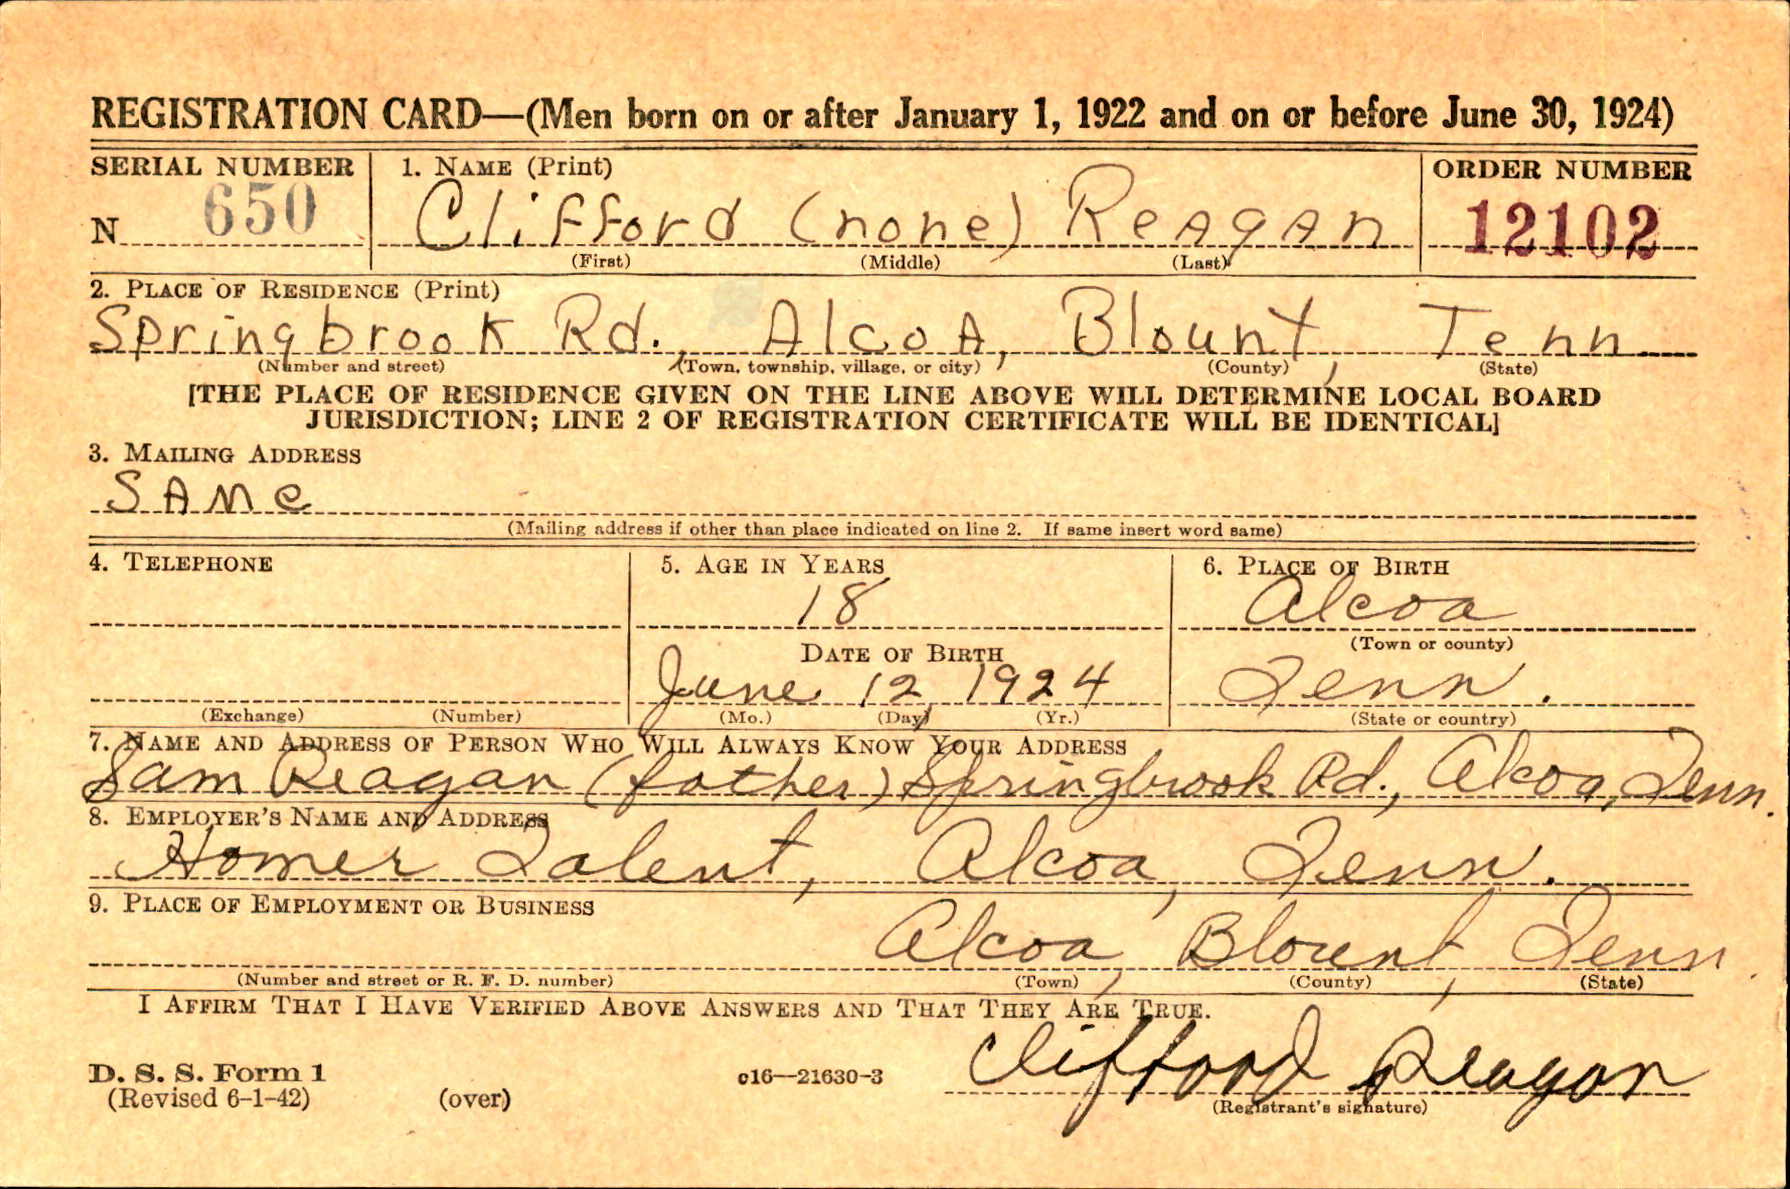 REGISTRATION CARD—(Men born on or after January 1, 1922 and on or before June 30, 1924)
SERIAL NUMBER
1. NAME (Print)
ORDER NUMBER
N 650
Clifford (none) Reagan
12102
(First) (Middle) (Last)
2. PLACE OF RESIDENCE (Print)
Springbrook Rd., Alcoa, Blount, Tenn
(Number and street) (Town, township, village, or city) (County) (State)
[THE PLACE OF RESIDENCE GIVEN ON THE LINE ABOVE WILL DETERMINE LOCAL BOARD
JURISDICTION; LINE 2 OF REGISTRATION CERTIFICATE WILL BE IDENTICAL]
3. MAILING ADDRESS
Same
(Mailing address if other than place indicated on line 2. If same insert word same)
4. TELEPHONE
(Exchange) (Number)
5. AGE IN YEARS
18
DATE OF BIRTH
June 12, 1924
(Mo.) (Day) (Yr.)
6. PLACE OF BIRTH
Alcoa
(Town or county)
Tenn.
(State or country)
7. NAME AND ADDRESS OF PERSON WHO WILL ALWAYS KNOW YOUR ADDRESS
Sam Reagan (father) Springbrook Rd., Alcoa, Tenn.
8. EMPLOYER'S NAME AND ADDRESS
Homer Talent, Alcoa, Tenn.
9. PLACE OF EMPLOYMENT OR BUSINESS
Alcoa, Blount, Tenn.
(Number and street or R. F. D. number) (Town) (County) (State)
I AFFIRM THAT I HAVE VERIFIED ABOVE ANSWERS AND THAT THEY ARE TRUE.
Clifford Reagan
(Registrant's signature)
D. S. S. Form 1
(Revised 6-1-42) (over) c16—21630-3